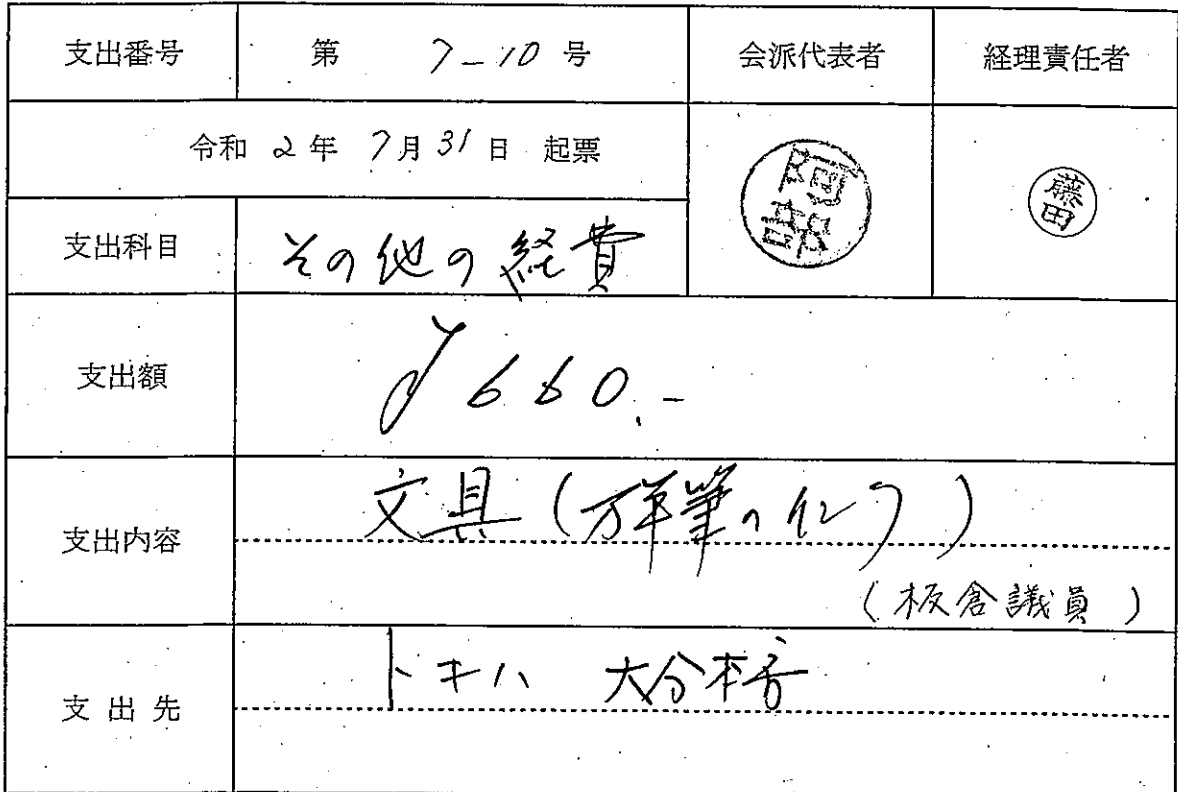 支出番号 第 7-10 号 会派代表者 経理責任者
令和 2 年 7月 31 日 起票
阿部
藤田
支出科目 その他の経費
支出額 ¥660.-
支出内容 文具(万年筆のインク)
(板倉議員)
支出先 トキハ 大分本店